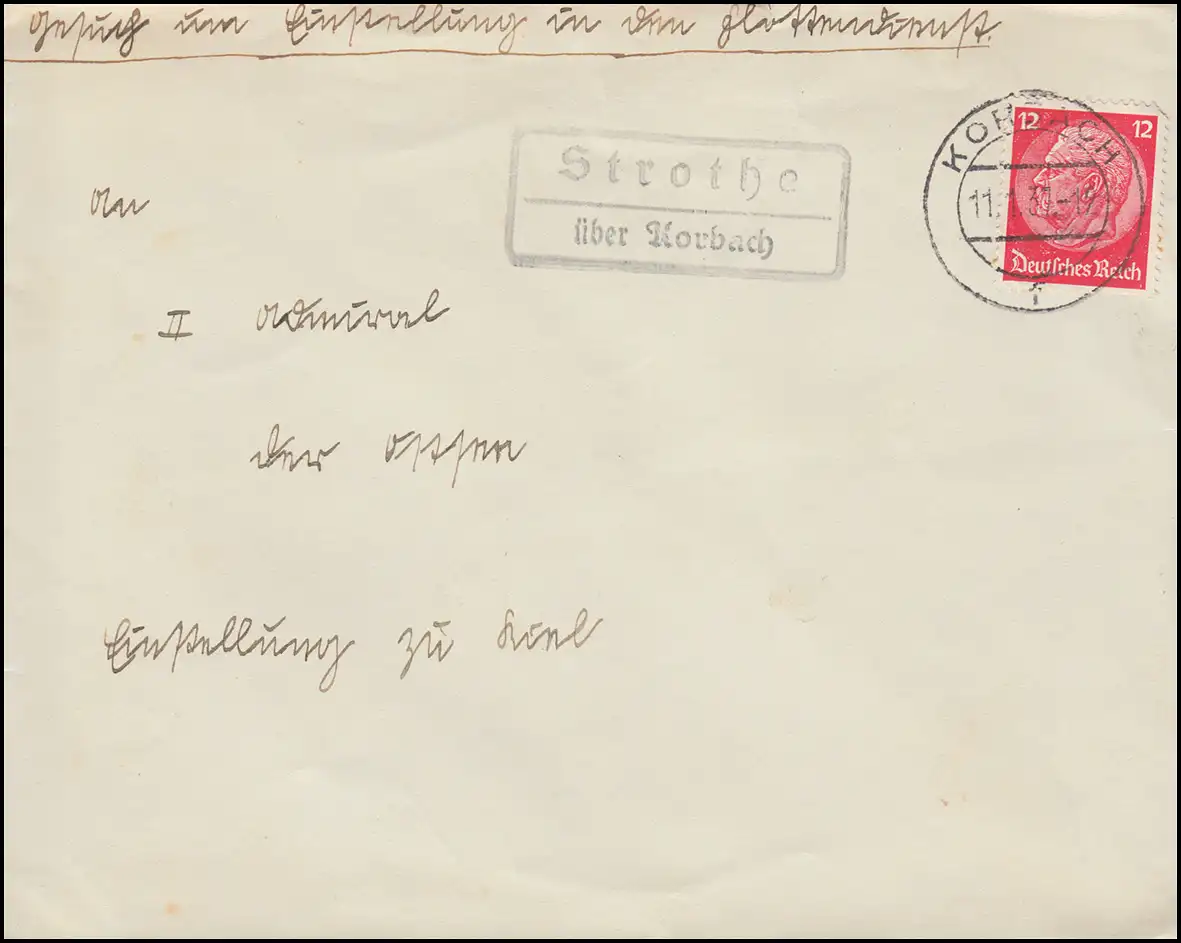 Gesuch um Einstellung in den Flottendienst.
Strothe
über Korbach
KORBACH
11.1.37.-19
f
12 12
Deutsches Reich
An
II Admiral
der Ostsee
Einstellung zu Kiel